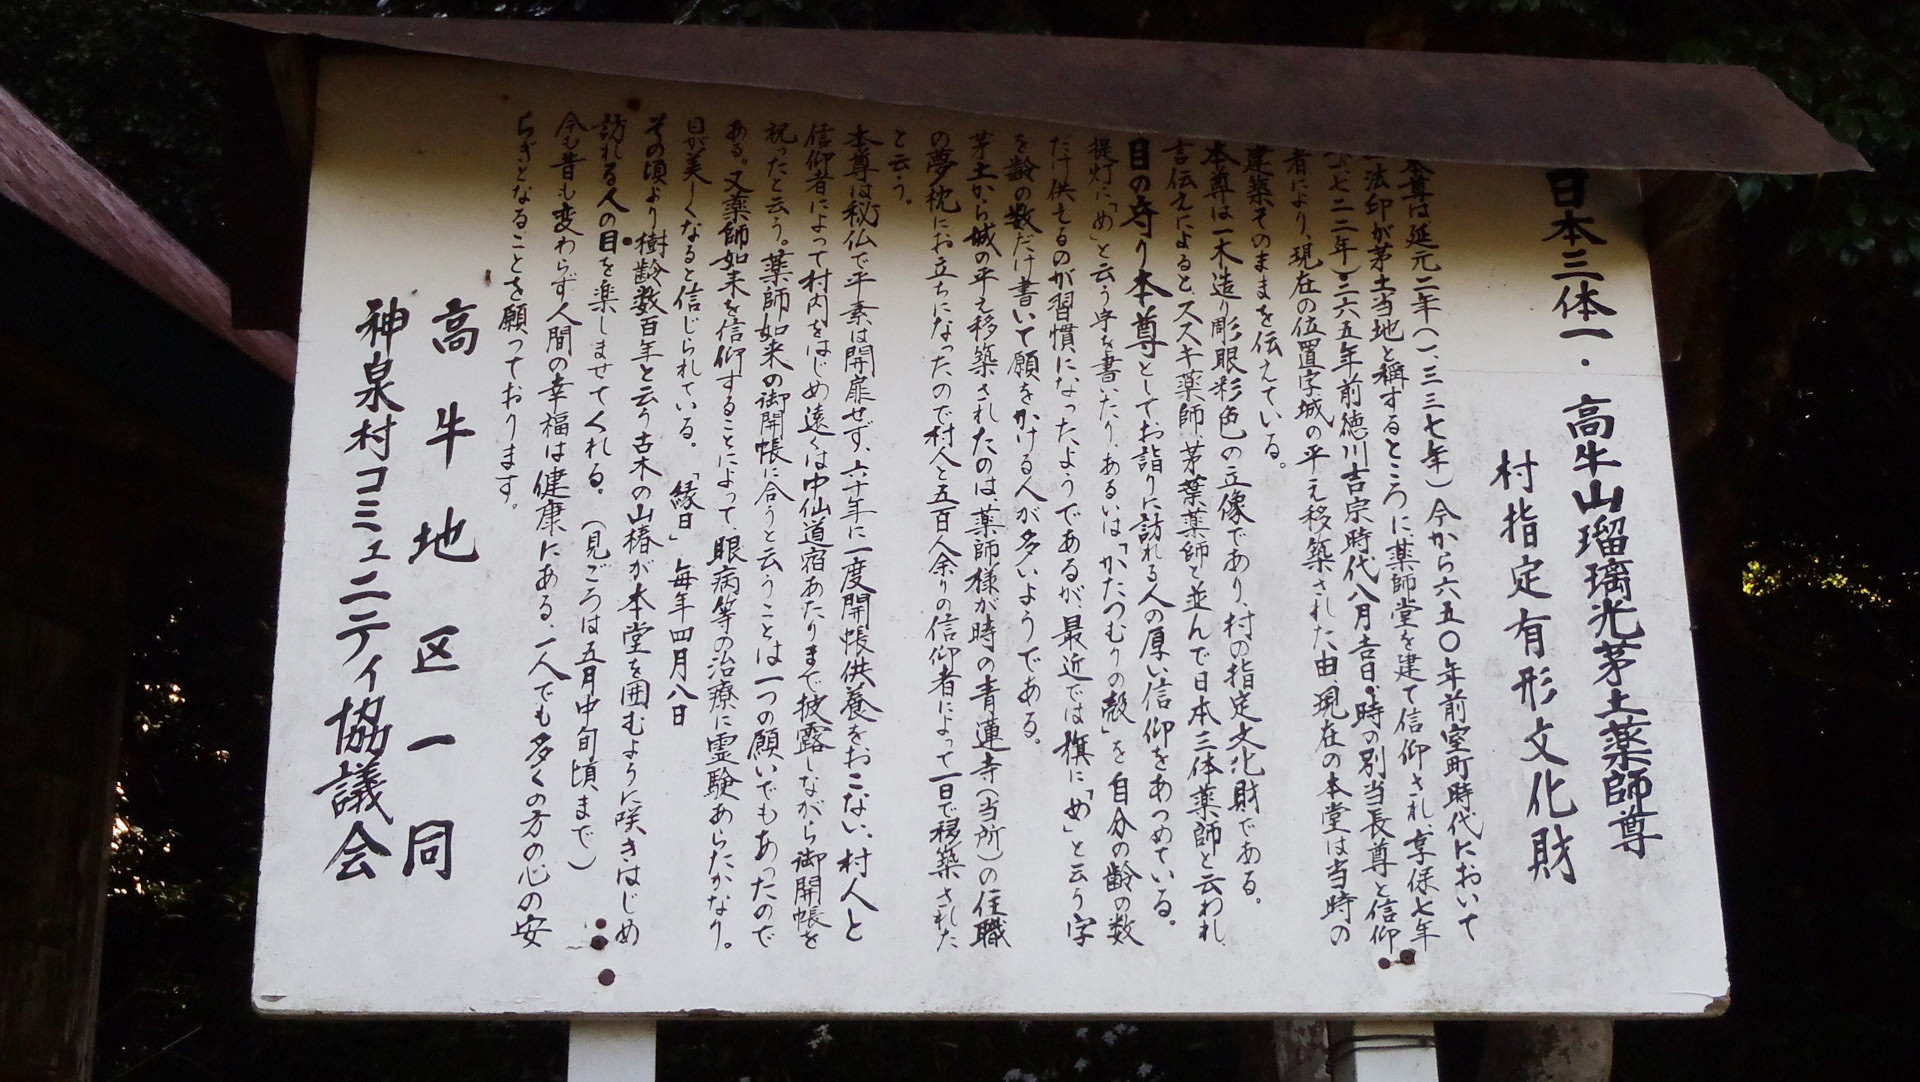 日本三体一・高牛山瑠璃光茅土薬師尊
村指定有形文化財
本尊は延元二年(一、三三七年)今から六五〇年前室町時代において
法印が茅土当地と稱するところに薬師堂を建て信仰され、享保七年
七二二年)二六五年前徳川吉宗時代八月吉日、時の別当長尊と信仰
者により、現在の位置字城の平え移築された由、現在の本堂は当時の
建築そのままを伝えている。
本尊は一木造り彫眼彩色の立像であり、村の指定文化財である。
言伝えによると、ススキ薬師、茅葉薬師と並んで日本三体薬師と云われ
目の守り本尊としてお詣りに訪れる人の厚い信仰をあつめている。
提灯に「め」と云う字を書いたり、あるいは「かたつむりの殻」を自分の齢の数
だけ供えるのが習慣になったようであるが、最近では旗に「め」と云う字
を齢の数だけ書いて願をかける人が多いようである。
茅土から城の平え移築されたのは、薬師様が時の青蓮寺(当所)の住職
の夢枕にお立ちになったので村人と五百人余りの信仰者によって一日で移築された
と云う。
本尊は秘仏で平素は開扉せず、六十年に一度開帳供養をおこない、村人と
信仰者によって村内をはじめ遠くは中仙道宿あたりまで披露しながら御開帳を
祝ったと云う。薬師如来の御開帳に合うと云うことは一つの願いでもあったので
ある。又薬師如来を信仰することによって、眼病等の治療に霊験あらたかなり。
目が美しくなると信じられている。「縁日」毎年四月八日
その頃より樹齢数百年と云う古木の山椿が本堂を囲むように咲きはじめ
訪れる人の目を楽しませてくれる。(見ごろは五月中旬頃まで)
今も昔も変わらず人間の幸福は健康にある、一人でも多くの方の心の安
らぎとなることを願っております。
高牛地区一同
神泉村コミュニティ協議会